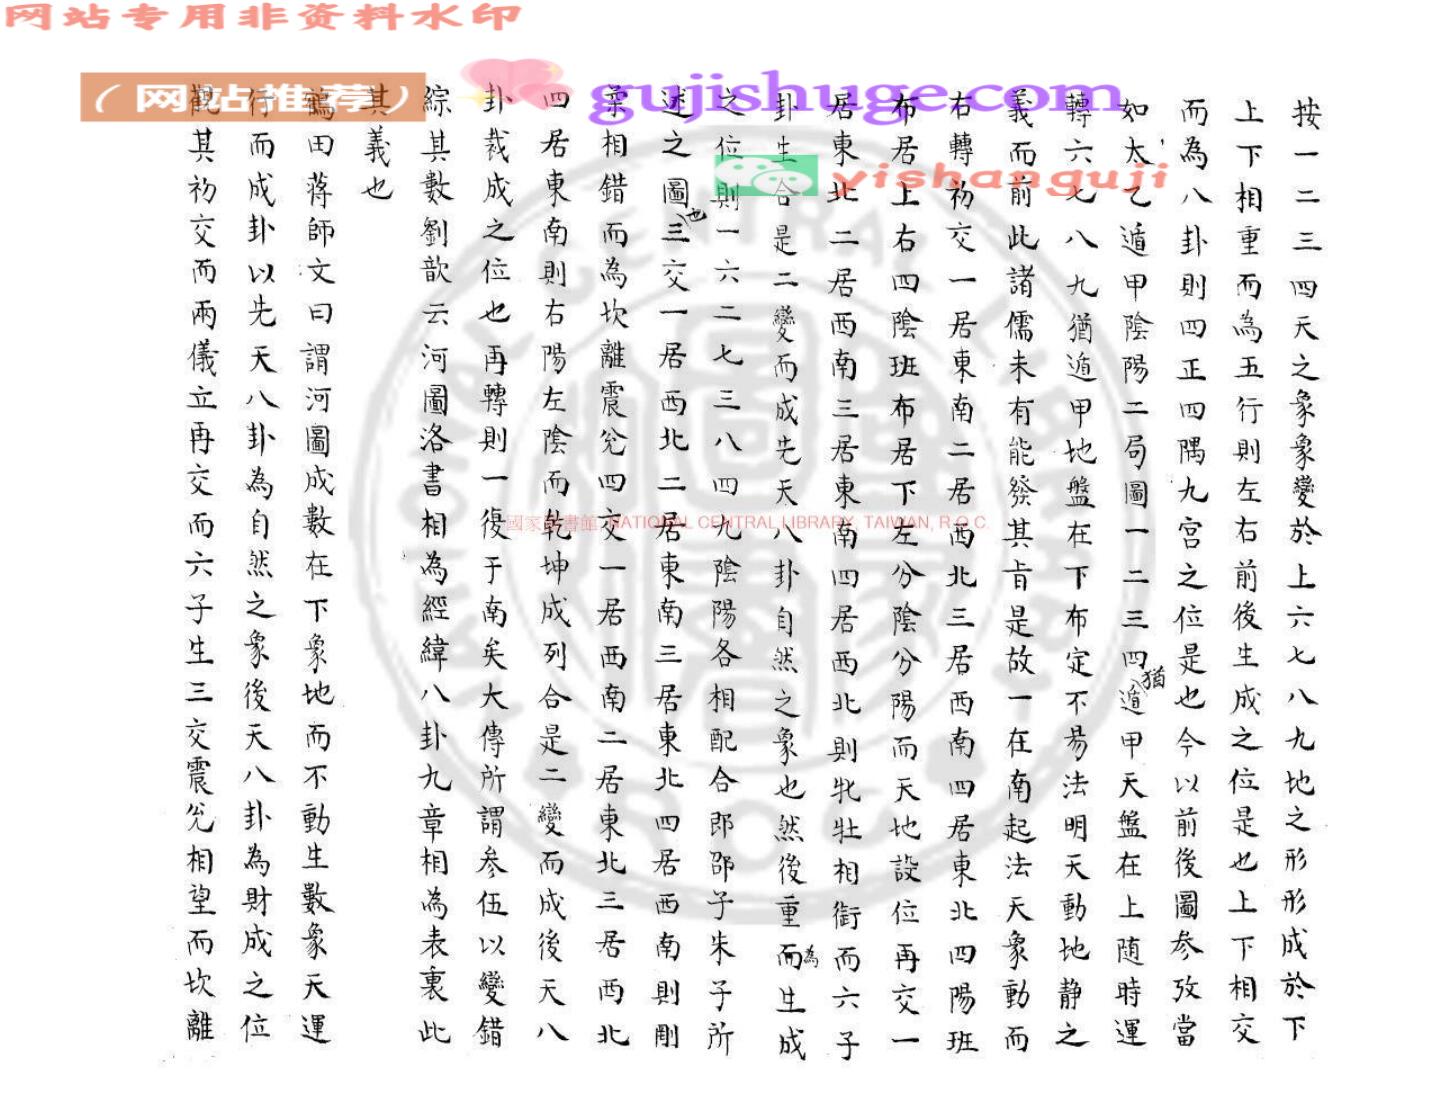 网站专用非资料水印
（网站推荐）
gujishuge.com
yishanguji
國家圖書館 NATIONAL CENTRAL LIBRARY, TAIWAN, R.O.C.
按一二三四天之象象變於上六七八九地之形形成於下
上下相重而為五行則左右前後生成之位是也上下相交
而為八卦則四正四隅九宮之位是也今以前後圖參攷當
如太乙遁甲陰陽二局圖一二三四猶遁甲天盤在上隨時運
轉六七八九猶遁甲地盤在下布定不易法明天動地静之
義而前此諸儒未有能發其旨是故一在南起法天象動而
右轉初交一居東南二居西北三居西南四居東北四陽班
布居上右四陰班布居下左分陰分陽而天地設位再交一
居東北二居西南三居東南四居西北則牝牡相銜而六子
卦生合是二變而成先天八卦自然之象也然後重而為生成
之位則一六二七三八四九陰陽各相配合即邵子朱子所
述之圖也三交一居西北二居東南三居東北四居西南則剛
柔相錯而為坎離震兌四交一居西南二居東北三居西北
四居東南則右陽左陰而乾坤成列合是二變而成後天八
卦裁成之位也再轉則一復于南矣大傳所謂參伍以變錯
綜其數劉歆云河圖洛書相為經緯八卦九章相為表裏此
其義也
鶴田蔣師文曰謂河圖成數在下象地而不動生數象天運
行而成卦以先天八卦為自然之象後天八卦為財成之位
觀其初交而兩儀立再交而六子生三交震兌相望而坎離